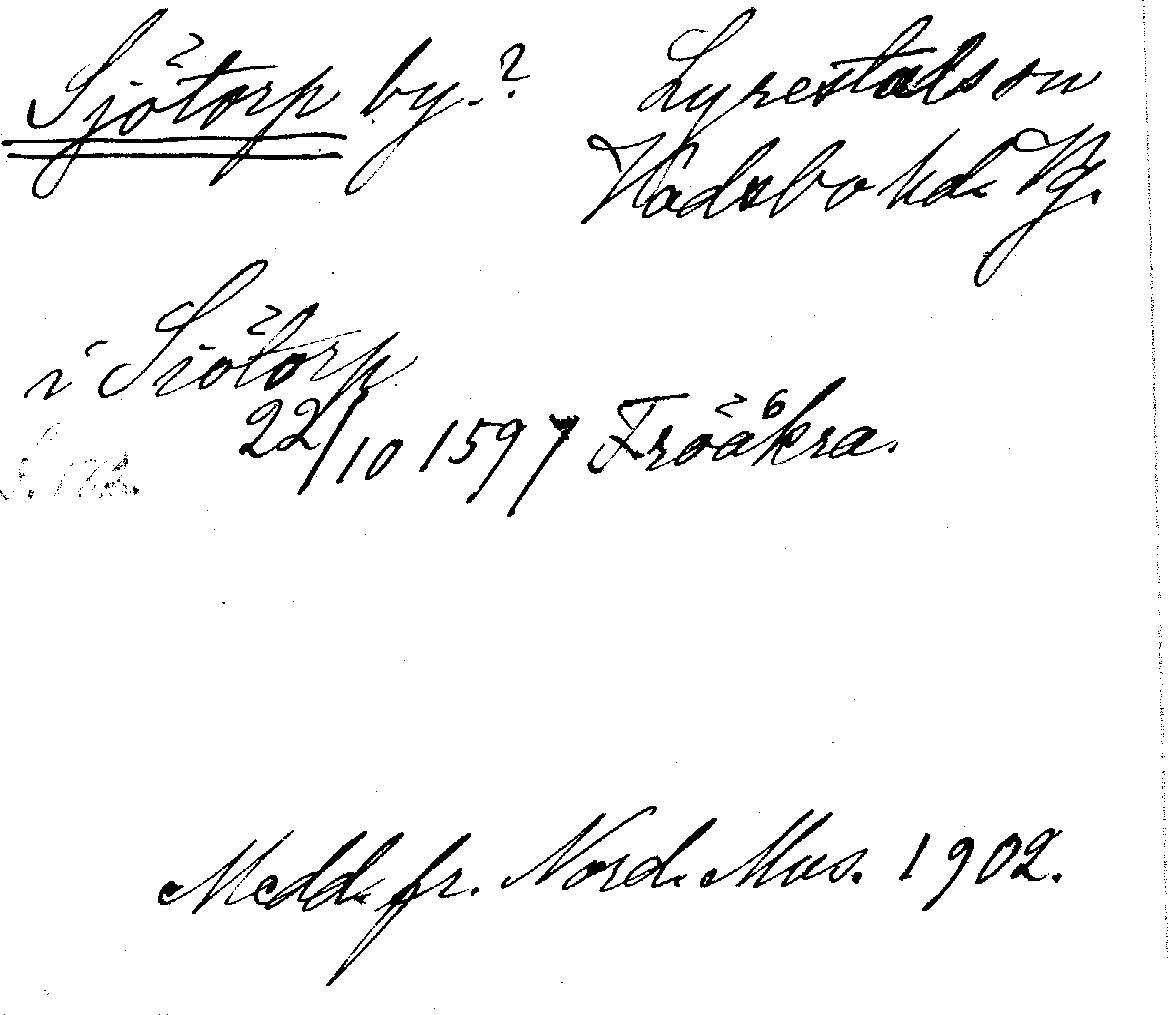 Sjötorp by.? Lyrestads sn
Vadsbo hd. Vg.
i Siötorp
22/10 1597 Fröåkra.
S. 172.
Medd. fr. Nord. Mus. 1902.